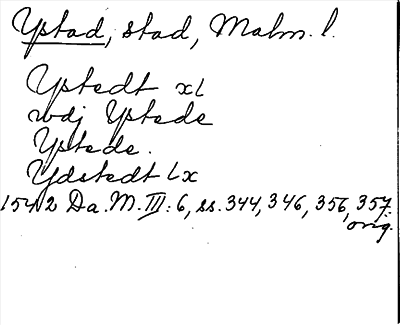 Ystad, stad, Malm. l.
Ystedt xl
wdj Ystede
Ystede.
Ydstedt lx
1542 Da. M. III: 6, ss. 344, 346, 356, 357.
orig.